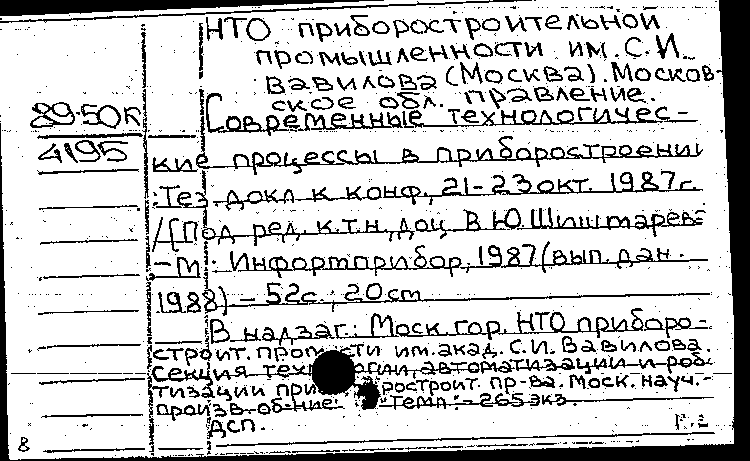 НТО приборостроительной
промышленности им. С.И.
Вавилова (Москва). Москов-
ское обл. правление.
89-50К
Современные технологичес-
4195
кие процессы в приборостроении
: Тез. докл. к конф., 21-23 окт. 1987 г.
/[Под ред. к.т.н., доц. В.Ю. Шишмарева
- М.: Информприбор, 1987 (вып. дан.
1988) - 52с.; 20см
В надзаг.: Моск. гор. НТО приборо-
строит. пром-сти им. акад. С.И. Вавилова.
Секция автоматизации и роб
тизации Моск. науч.-
произв. об-ние. 265 экз.
ДСП.
8